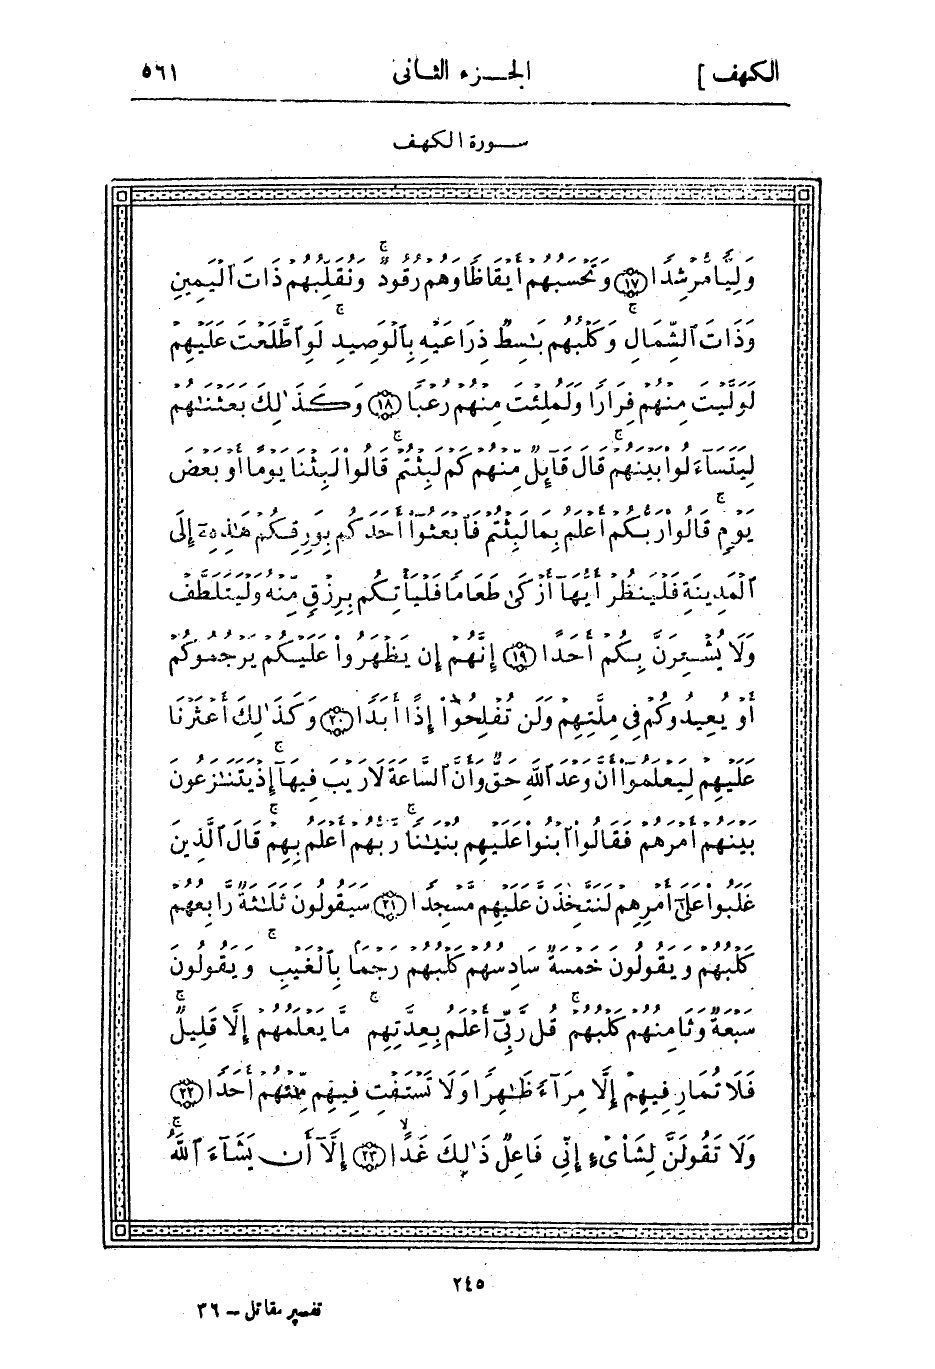 الكهف ] الجزء الثانى ٥٦١
سورة الكهف
وَلِيًّا مُّرْشِدًا ﴿١٧﴾ وَتَحْسَبُهُمْ أَيْقَاظًا وَهُمْ رُقُودٌ ۚ وَنُقَلِّبُهُمْ ذَاتَ ٱلْيَمِينِ
وَذَاتَ ٱلشِّمَالِ ۖ وَكَلْبُهُم بَٰسِطٌ ذِرَاعَيْهِ بِٱلْوَصِيدِ ۚ لَوِ ٱطَّلَعْتَ عَلَيْهِمْ
لَوَلَّيْتَ مِنْهُمْ فِرَارًا وَلَمُلِئْتَ مِنْهُمْ رُعْبًا ﴿١٨﴾ وَكَذَٰلِكَ بَعَثْنَٰهُمْ
لِيَتَسَآءَلُوا۟ بَيْنَهُمْ ۚ قَالَ قَآئِلٌ مِّنْهُمْ كَمْ لَبِثْتُمْ ۖ قَالُوا۟ لَبِثْنَا يَوْمًا أَوْ بَعْضَ
يَوْمٍ ۚ قَالُوا۟ رَبُّكُمْ أَعْلَمُ بِمَا لَبِثْتُمْ فَٱبْعَثُوٓا۟ أَحَدَكُم بِوَرِقِكُمْ هَٰذِهِۦٓ إِلَى
ٱلْمَدِينَةِ فَلْيَنظُرْ أَيُّهَآ أَزْكَىٰ طَعَامًا فَلْيَأْتِكُم بِرِزْقٍ مِّنْهُ وَلْيَتَلَطَّفْ
وَلَا يُشْعِرَنَّ بِكُمْ أَحَدًا ﴿١٩﴾ إِنَّهُمْ إِن يَظْهَرُوا۟ عَلَيْكُمْ يَرْجُمُوكُمْ
أَوْ يُعِيدُوكُمْ فِى مِلَّتِهِمْ وَلَن تُفْلِحُوٓا۟ إِذًا أَبَدًا ﴿٢٠﴾ وَكَذَٰلِكَ أَعْثَرْنَا
عَلَيْهِمْ لِيَعْلَمُوٓا۟ أَنَّ وَعْدَ ٱللَّهِ حَقٌّ وَأَنَّ ٱلسَّاعَةَ لَا رَيْبَ فِيهَآ إِذْ يَتَنَٰزَعُونَ
بَيْنَهُمْ أَمْرَهُمْ ۖ فَقَالُوا۟ ٱبْنُوا۟ عَلَيْهِم بُنْيَٰنًا ۖ رَّبُّهُمْ أَعْلَمُ بِهِمْ ۚ قَالَ ٱلَّذِينَ
غَلَبُوا۟ عَلَىٰٓ أَمْرِهِمْ لَنَتَّخِذَنَّ عَلَيْهِم مَّسْجِدًا ﴿٢١﴾ سَيَقُولُونَ ثَلَٰثَةٌ رَّابِعُهُمْ
كَلْبُهُمْ وَيَقُولُونَ خَمْسَةٌ سَادِسُهُمْ كَلْبُهُمْ رَجْمًا بِٱلْغَيْبِ ۖ وَيَقُولُونَ
سَبْعَةٌ وَثَامِنُهُمْ كَلْبُهُمْ ۚ قُل رَّبِّىٓ أَعْلَمُ بِعِدَّتِهِم مَّا يَعْلَمُهُمْ إِلَّا قَلِيلٌ ۗ
فَلَا تُمَارِ فِيهِمْ إِلَّا مِرَآءً ظَٰهِرًا وَلَا تَسْتَفْتِ فِيهِم مِّنْهُمْ أَحَدًا ﴿٢٢﴾
وَلَا تَقُولَنَّ لِشَا۟ىْءٍ إِنِّى فَاعِلٌ ذَٰلِكَ غَدًا ﴿٢٣﴾ إِلَّآ أَن يَشَآءَ ٱللَّهُ ۚ
٢٤٥
تفسير مقاتل – ٣٦